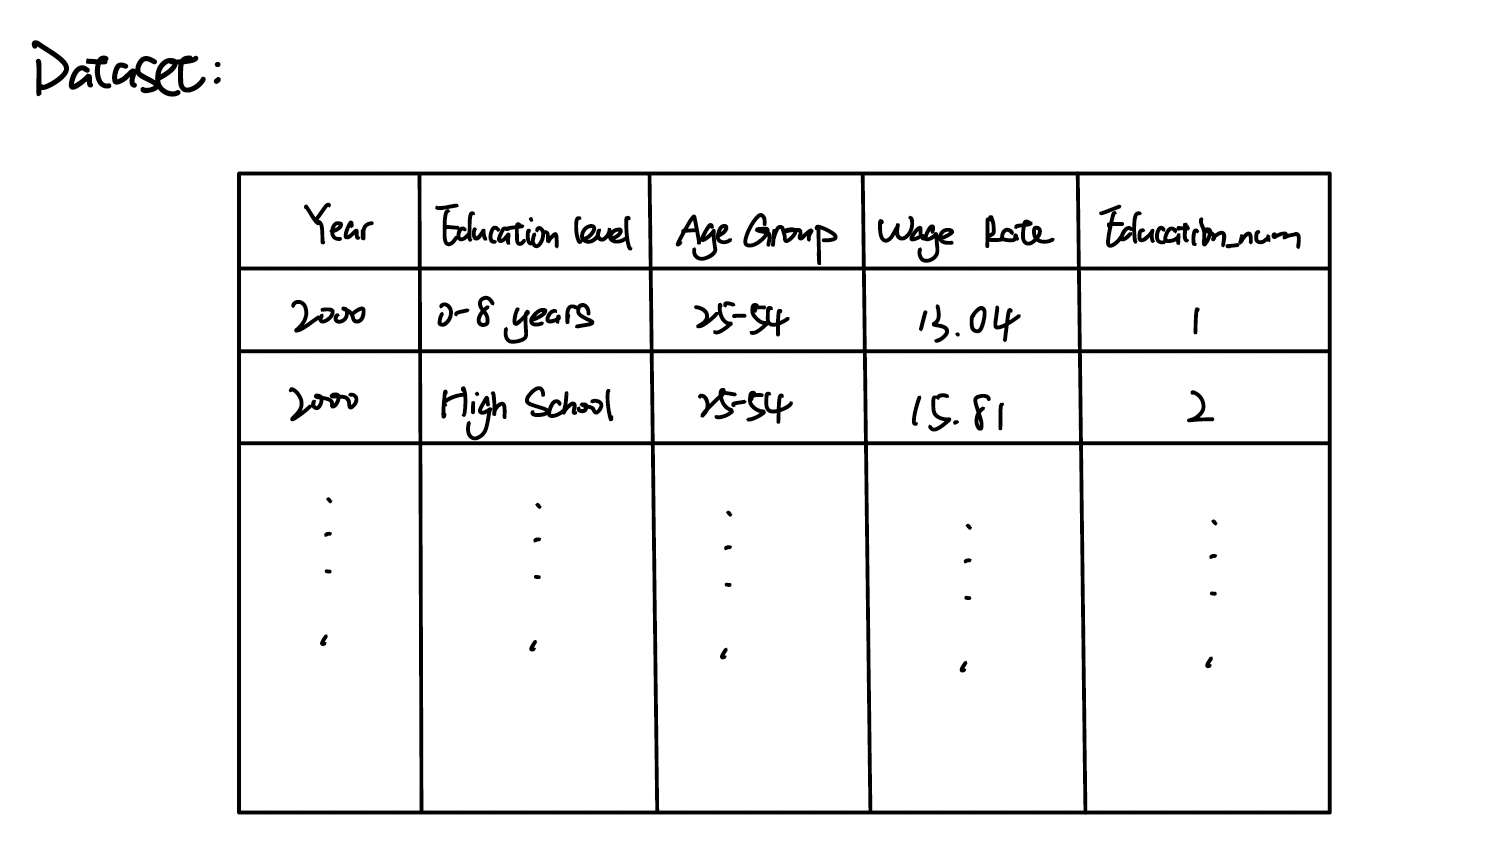 Dataset:
Year Education level Age Group Wage Rate Education_num
2000 0-8 years 25-54 13.04 1
2000 High School 25-54 15.81 2